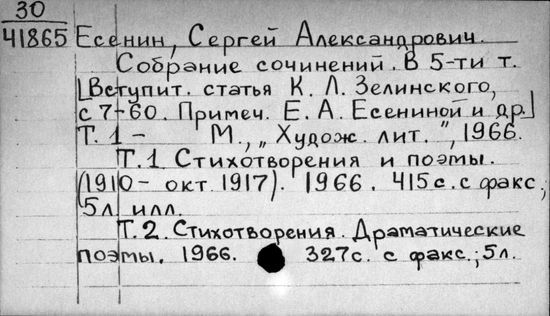 30
41865 Есенин, Сергей Александрович.
Собрание сочинений. В 5-ти т.
[Вступит. статья К. Л. Зелинского,
с 7-60. Примеч. Е. А. Есениной и др.]
Т. 1 - М., „Худож. лит.", 1966.
Т.1 Стихотворения и поэмы.
(1910 - окт. 1917). 1966. 415 с. с факс.;
5 л. илл.
Т. 2. Стихотворения. Драматические
поэмы. 1966. 327с. с факс.; 5л.